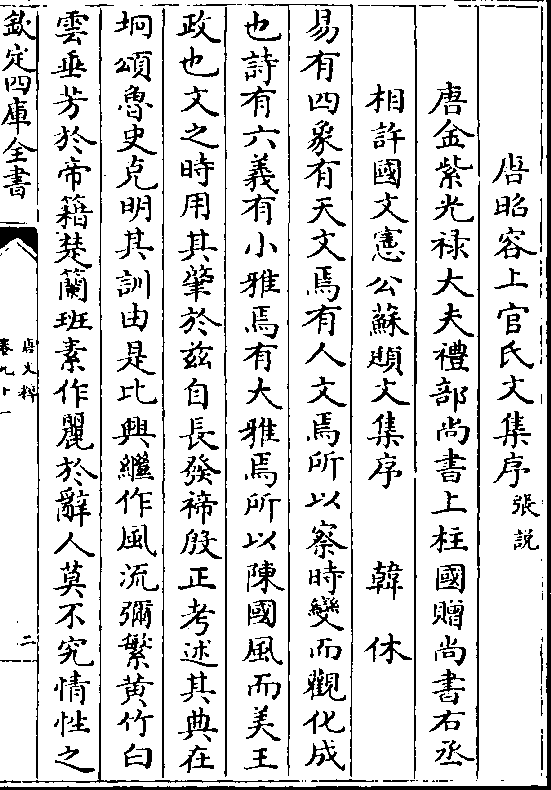 唐昭容上官氏文集序 張說
唐金紫光禄大夫禮部尚書上柱國贈尚書右丞
相許國文憲公蘇頲文集序 韓休
易有四象有天文焉有人文焉所以察時變而觀化成
也詩有六義有小雅焉有大雅焉所以陳國風而美王
政也文之時用其肇於兹自長發禘殷正考述其典在
坰頌魯史克明其訓由是比興繼作風流彌繁黄竹白
雲垂芳於帝籍楚蘭班素作麗於辭人莫不究情性之
欽定四庫全書
唐文粹
卷九十一
二